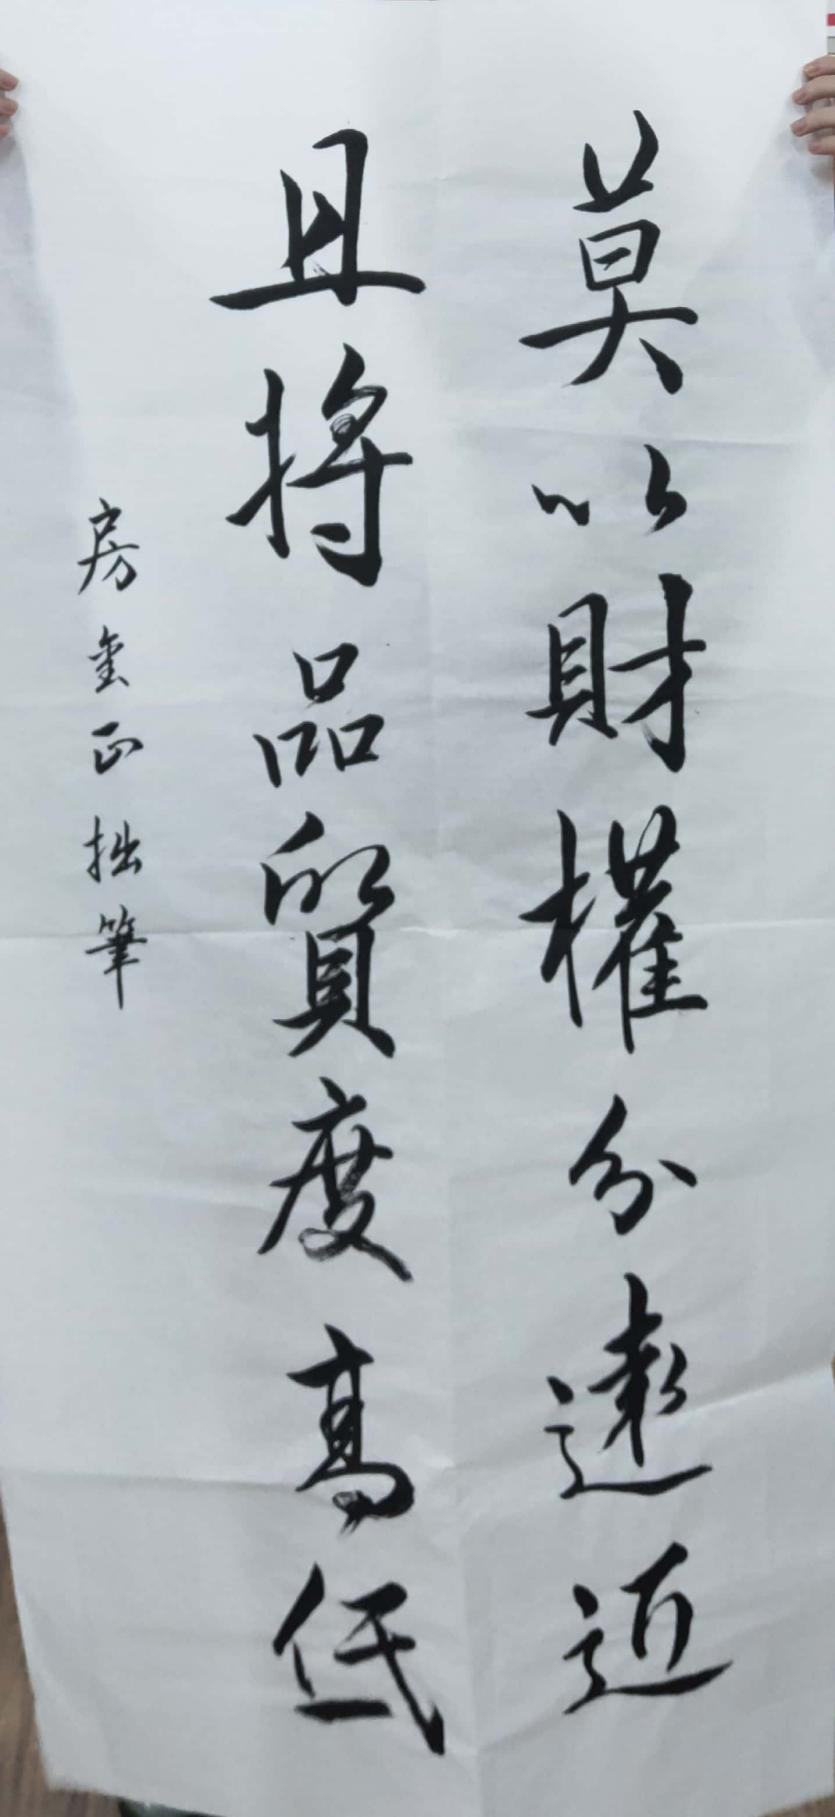 莫以財權分遠近
且將品質度高低
房金正拙筆